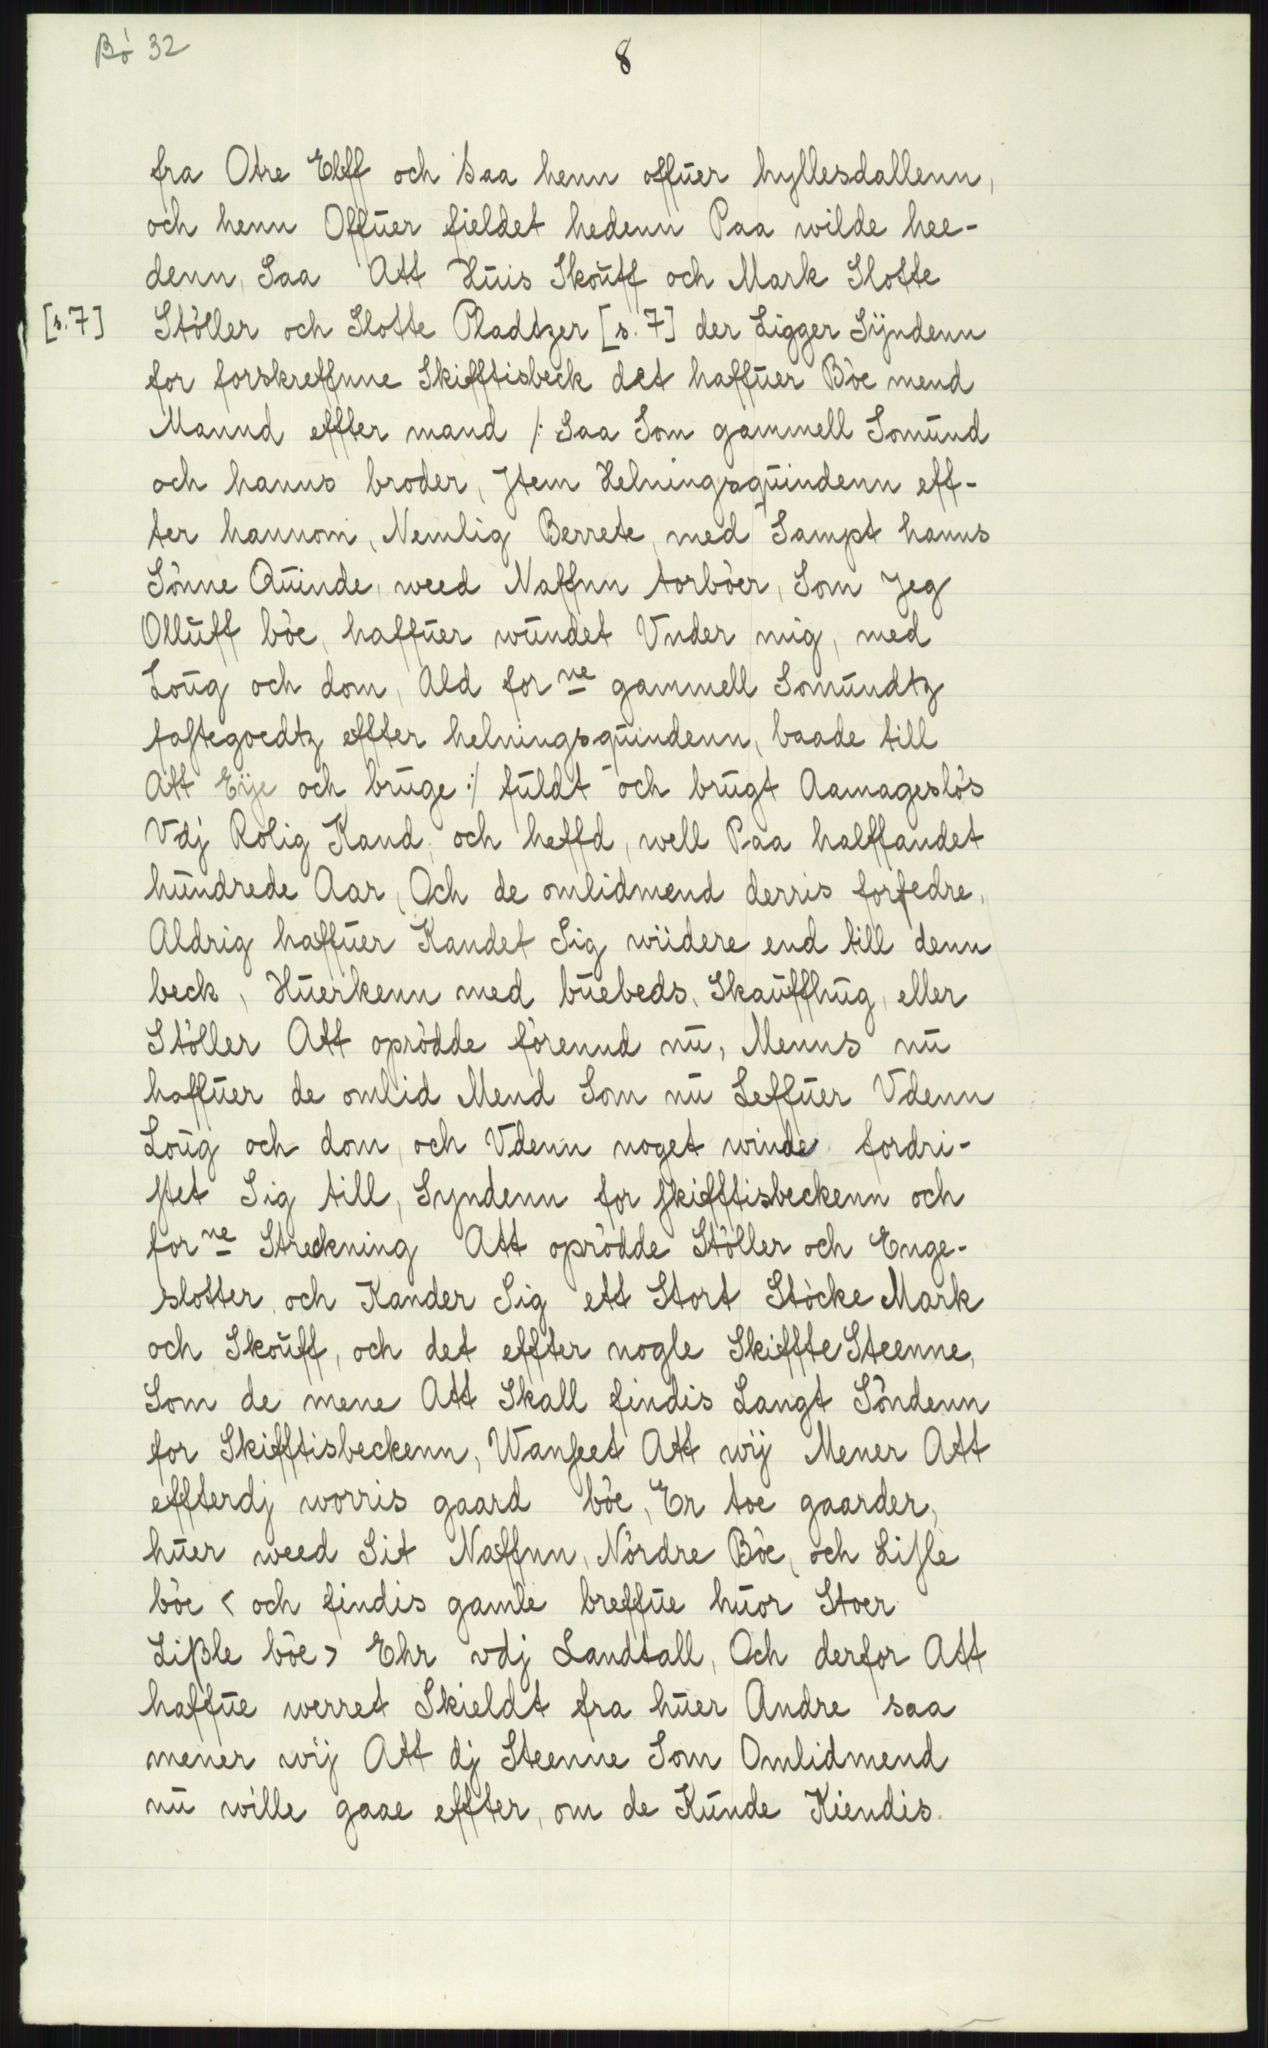 Bö 32
8
fra Otre Elff och saa henn offuer hyllesdallenn,
och henn Offuer fieldet hedenn Paa wilde hee-
denn, Saa Att Huis Skouff och Mark Slotte
[s. 7] Stöller och Slotte Pladtzer [s. 7] der Ligger Sÿndenn
for forskreffnne Skifftisbeck det haffuer Böe mend
Mannd effter mand /: Saa Som gammell Somund
och hanns broder, Jtem Helningsquindenn eff-
ter hannom, Nemlig Berrete, med Sampt hanns
Sönne Quinde, weed Naffnn torböer, Som Jeg
Olluff böe, haffuer wundet Vnder mig, med
Loug och dom, Ald forne gammell Somundtz
toftegoedtz effter helningsquindenn, baade till
Att Eije och bruge :/ fuldt och brugt Aamageslös
Vdj Rolig Kand, och heffd, well Paa halffandet
hundrede Aar, Och de omlidmend derris forfedre,
Aldrig haffuer Kandet Sig wiidere end till denn
beck, Huerkenn med buebeds, Skauffhug, eller
Stöller Att oprödde förennd nu, Menns nu
haffuer de omlid Mend Som nu Leffuer Vdenn
Loug och dom, och Vdenn noget winde fordri-
stet Sig till, Syndenn for skifftisbeckenn och
forne Streckning Att oprödde Stöller och Enge-
slotter, och Kander Sig ett Stort Stöcke Mark
och Skouff, och det effter nogle Skiffte Steenne,
Som de mene Att Skall findis Langt Söndenn
for Skifftisbeckenn, Wanseet Att wij Mener Att
effterdj worris gaard böe, Er toe gaarder,
huer weed Sit Naffnn, Nördre Böe, och Lisle
böe < och findis gamle breffue huor Stoer
Lißle böe > Ehr vdj Landtall, Och derfor Att
haffue werret Skieldt fra huer Andre saa
mener wij Att dj Steenne Som Omlidmend
nu wille gaae effter, om de Kunde Kiendis.